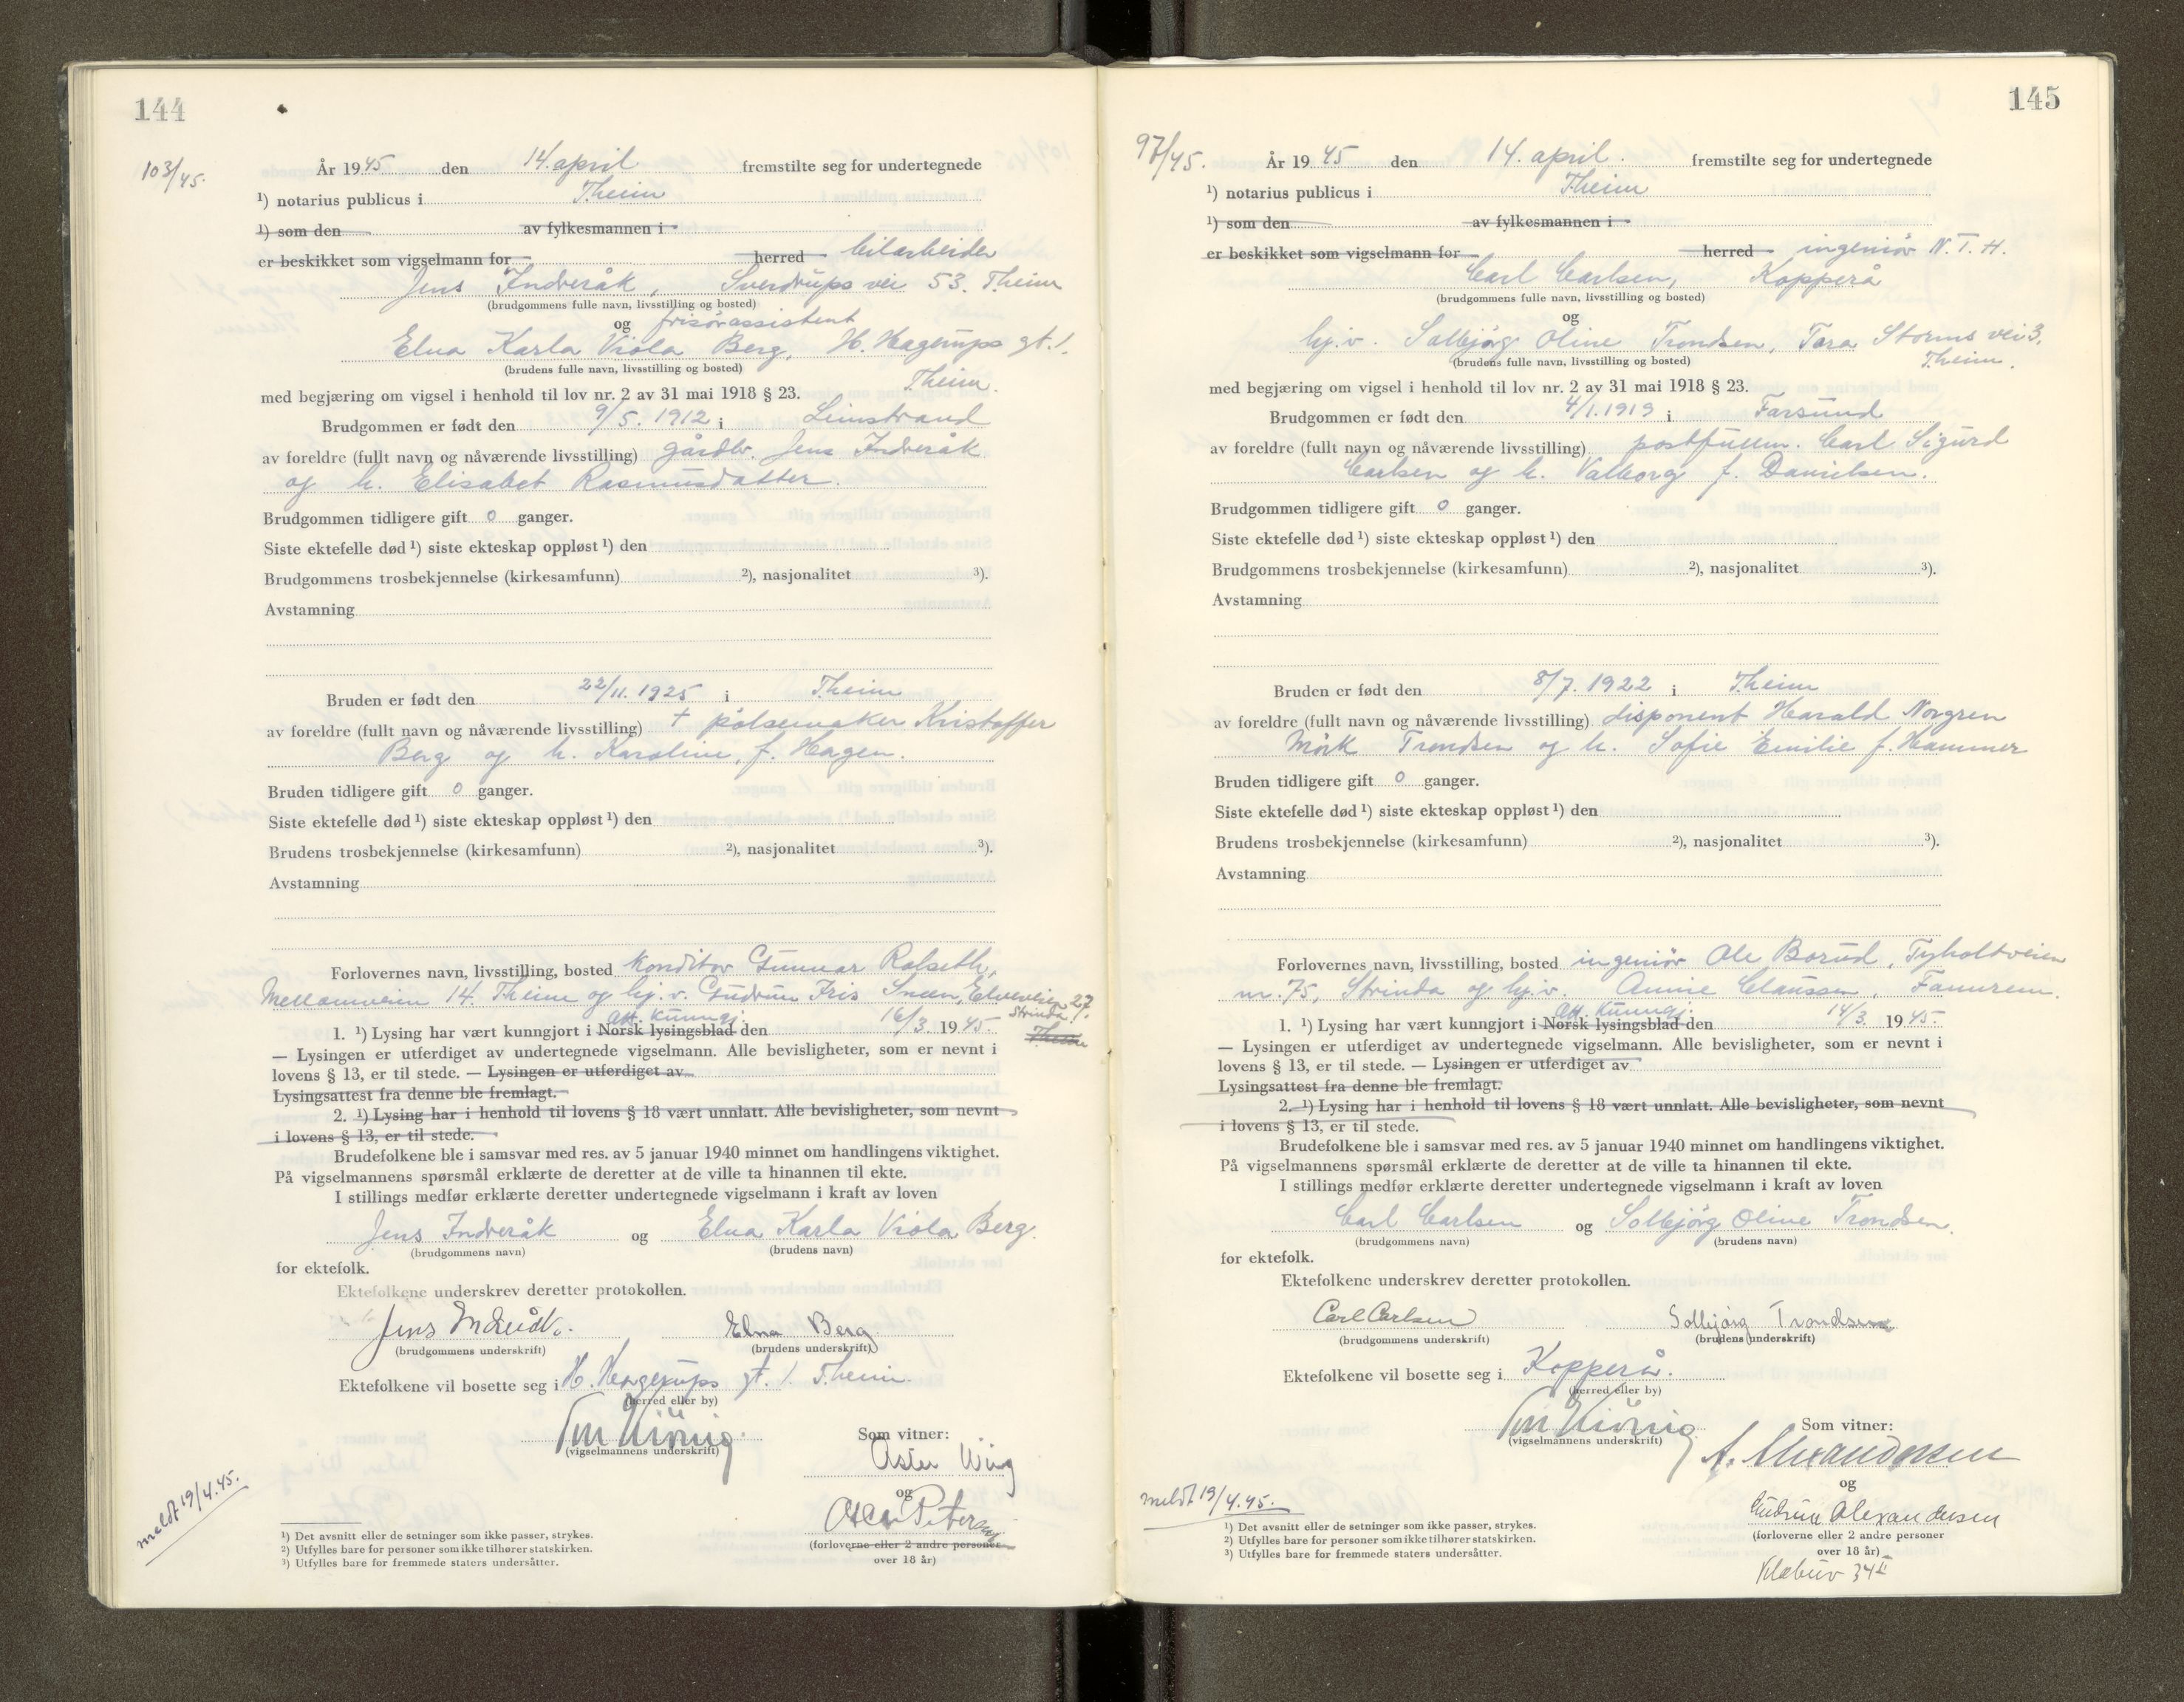 144
103/45.
År 1945 den 14. april fremstilte seg for undertegnede
¹) notarius publicus i Theim
¹) som den av fylkesmannen i
er beskikket som vigselmann for herred bilarbeider
Jens Indreråk, Sverdrups vei 53. Theim
(brudgommens fulle navn, livsstilling og bosted)
og frisørassistent
Elna Karla Viola Berg, H. Hagerups gt. 1.
(brudens fulle navn, livsstilling og bosted)
Theim.
med begjæring om vigsel i henhold til lov nr. 2 av 31 mai 1918 § 23.
Brudgommen er født den 9/5. 1912 i Leinstrand
av foreldre (fullt navn og nåværende livsstilling) gårdbr. Jens Indreråk
og h. Elisabet Rasmusdatter.
Brudgommen tidligere gift 0 ganger.
Siste ektefelle død ¹) siste ekteskap oppløst ¹) den
Brudgommens trosbekjennelse (kirkesamfunn) ²), nasjonalitet ³).
Avstamning
Bruden er født den 22/11. 1925 i Theim
av foreldre (fullt navn og nåværende livsstilling) + pølsemaker Kristoffer
Berg og h. Karoline, f. Hagen.
Bruden tidligere gift 0 ganger.
Siste ektefelle død ¹) siste ekteskap oppløst ¹) den
Brudens trosbekjennelse (kirkesamfunn) ²), nasjonalitet ³).
Avstamning
Forlovernes navn, livsstilling, bosted konditor Gunnar Rolseth,
Mellomveien 14. Theim og hj.v. Gudrun Iris Sneen, Elveveien 27.
Strinda.
att. kunngj.
1. ¹) Lysing har vært kunngjort i Norsk lysingsblad den 16/3. 1945. Theim
— Lysingen er utferdiget av undertegnede vigselmann. Alle bevisligheter, som er nevnt i
lovens § 13, er til stede. — Lysingen er utferdiget av
Lysingsattest fra denne ble fremlagt.
2. ¹) Lysing har i henhold til lovens § 18 vært unnlatt. Alle bevisligheter, som nevnt
i lovens § 13, er til stede.
Brudefolkene ble i samsvar med res. av 5 januar 1940 minnet om handlingens viktighet.
På vigselmannens spørsmål erklærte de deretter at de ville ta hinannen til ekte.
I stillings medfør erklærte deretter undertegnede vigselmann i kraft av loven
Jens Indreråk og Elna Karla Viola Berg.
(brudgommens navn) (brudens navn)
for ektefolk.
Ektefolkene underskrev deretter protokollen.
Jens Elna Berg
(brudgommens underskrift) (brudens underskrift)
Ektefolkene vil bosette seg i H. Hagerups gt. 1. Theim.
(herred eller by)
(vigselmannens underskrift)
Som vitner:
og
(forloverne eller 2 andre personer
over 18 år)
meldt 19/4.45.
¹) Det avsnitt eller de setninger som ikke passer, strykes.
²) Utfylles bare for personer som ikke tilhører statskirken.
³) Utfylles bare for fremmede staters undersåtter.
145
97/45.
År 1945 den 14. april. fremstilte seg for undertegnede
¹) notarius publicus i Theim
¹) som den av fylkesmannen i
er beskikket som vigselmann for herred ingeniør N.T.H.
Carl Carlsen, Kopperå
(brudgommens fulle navn, livsstilling og bosted)
og
hj.v. Solbjørg Oline Trondsen, Tora Storms vei 3.
(brudens fulle navn, livsstilling og bosted) Theim.
med begjæring om vigsel i henhold til lov nr. 2 av 31 mai 1918 § 23.
Brudgommen er født den 4/1. 1919 i Farsund
av foreldre (fullt navn og nåværende livsstilling) postfullm. Carl Sigurd
Carlsen og h. Valborg f. Danielsen.
Brudgommen tidligere gift 0 ganger.
Siste ektefelle død ¹) siste ekteskap oppløst ¹) den
Brudgommens trosbekjennelse (kirkesamfunn) ²), nasjonalitet ³).
Avstamning
Bruden er født den 8/7. 1922 i Theim
av foreldre (fullt navn og nåværende livsstilling) disponent Harald Norgren
Mørk Trondsen og h. Sofie Emilie f. Hammer
Bruden tidligere gift 0 ganger.
Siste ektefelle død ¹) siste ekteskap oppløst ¹) den
Brudens trosbekjennelse (kirkesamfunn) ²), nasjonalitet ³).
Avstamning
Forlovernes navn, livsstilling, bosted ingeniør Ole Borud, Tyholtveien
nr. 75, Strinda og hj.v. Annie Claussen, Fannrem.
att. kunngj.
1. ¹) Lysing har vært kunngjort i Norsk lysingsblad den 14/3. 1945.
— Lysingen er utferdiget av undertegnede vigselmann. Alle bevisligheter, som er nevnt i
lovens § 13, er til stede. — Lysingen er utferdiget av
Lysingsattest fra denne ble fremlagt.
2. ¹) Lysing har i henhold til lovens § 18 vært unnlatt. Alle bevisligheter, som nevnt
i lovens § 13, er til stede.
Brudefolkene ble i samsvar med res. av 5 januar 1940 minnet om handlingens viktighet.
På vigselmannens spørsmål erklærte de deretter at de ville ta hinannen til ekte.
I stillings medfør erklærte deretter undertegnede vigselmann i kraft av loven
Carl Carlsen og Solbjørg Oline Trondsen.
(brudgommens navn) (brudens navn)
for ektefolk.
Ektefolkene underskrev deretter protokollen.
Carl Carlsen Solbjørg Trondsen
(brudgommens underskrift) (brudens underskrift)
Ektefolkene vil bosette seg i Kopperå.
(herred eller by)
(vigselmannens underskrift)
Som vitner:
A. Alexandersen
og
Gudrun Alexandersen
(forloverne eller 2 andre personer
over 18 år)
Klæbuv 34 II
meldt 19/4.45.
¹) Det avsnitt eller de setninger som ikke passer, strykes.
²) Utfylles bare for personer som ikke tilhører statskirken.
³) Utfylles bare for fremmede staters undersåtter.